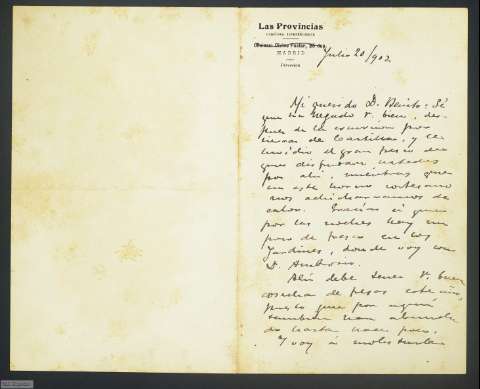 Las Provincias
MADRID
Dirección
Julio 20/902.
Mi querido D. Benito: Sé
que ha llegado V. bien, des-
pues de la excursion por
tierras de Castilla, y le
envidio el gran fresco de
que disfrutan ustedes
por ahí, mientras que
en este horno cortesano
nos achicharramos de
calor. Gracias á que
por las noches hay un
poco de fresco en los
Jardines, donde voy con
D. Ambrosio.
Ahí debe tener V. buena
cosecha de este año,
puesto que por aquí
tambien han abunda-
do hasta hace poco.
Y voy á molestarle